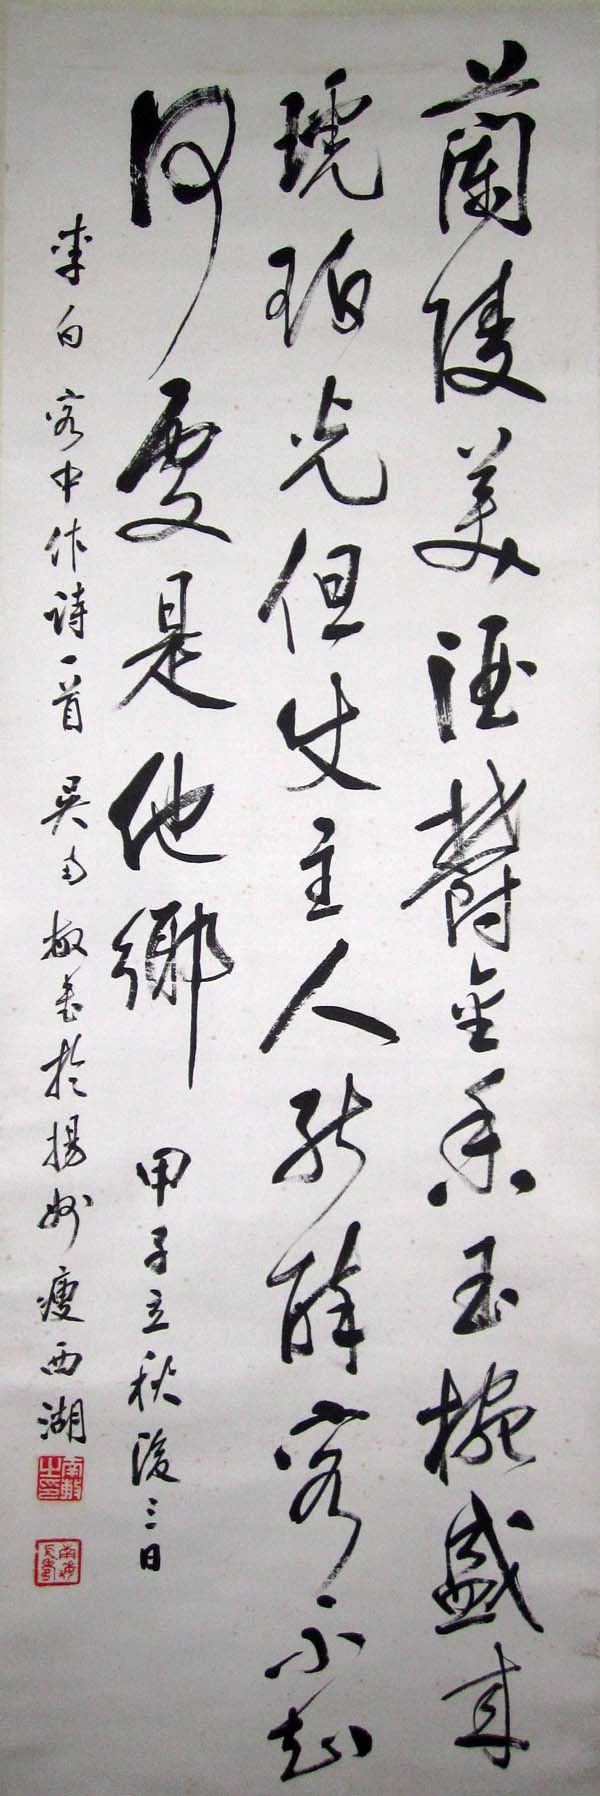 蘭陵美酒鬱金香玉椀盛來
琥珀光但使主人能醉客不知
何處是他鄉
甲子立秋後三日
李白客中作詩一首 吳南敏書於揚州瘦西湖